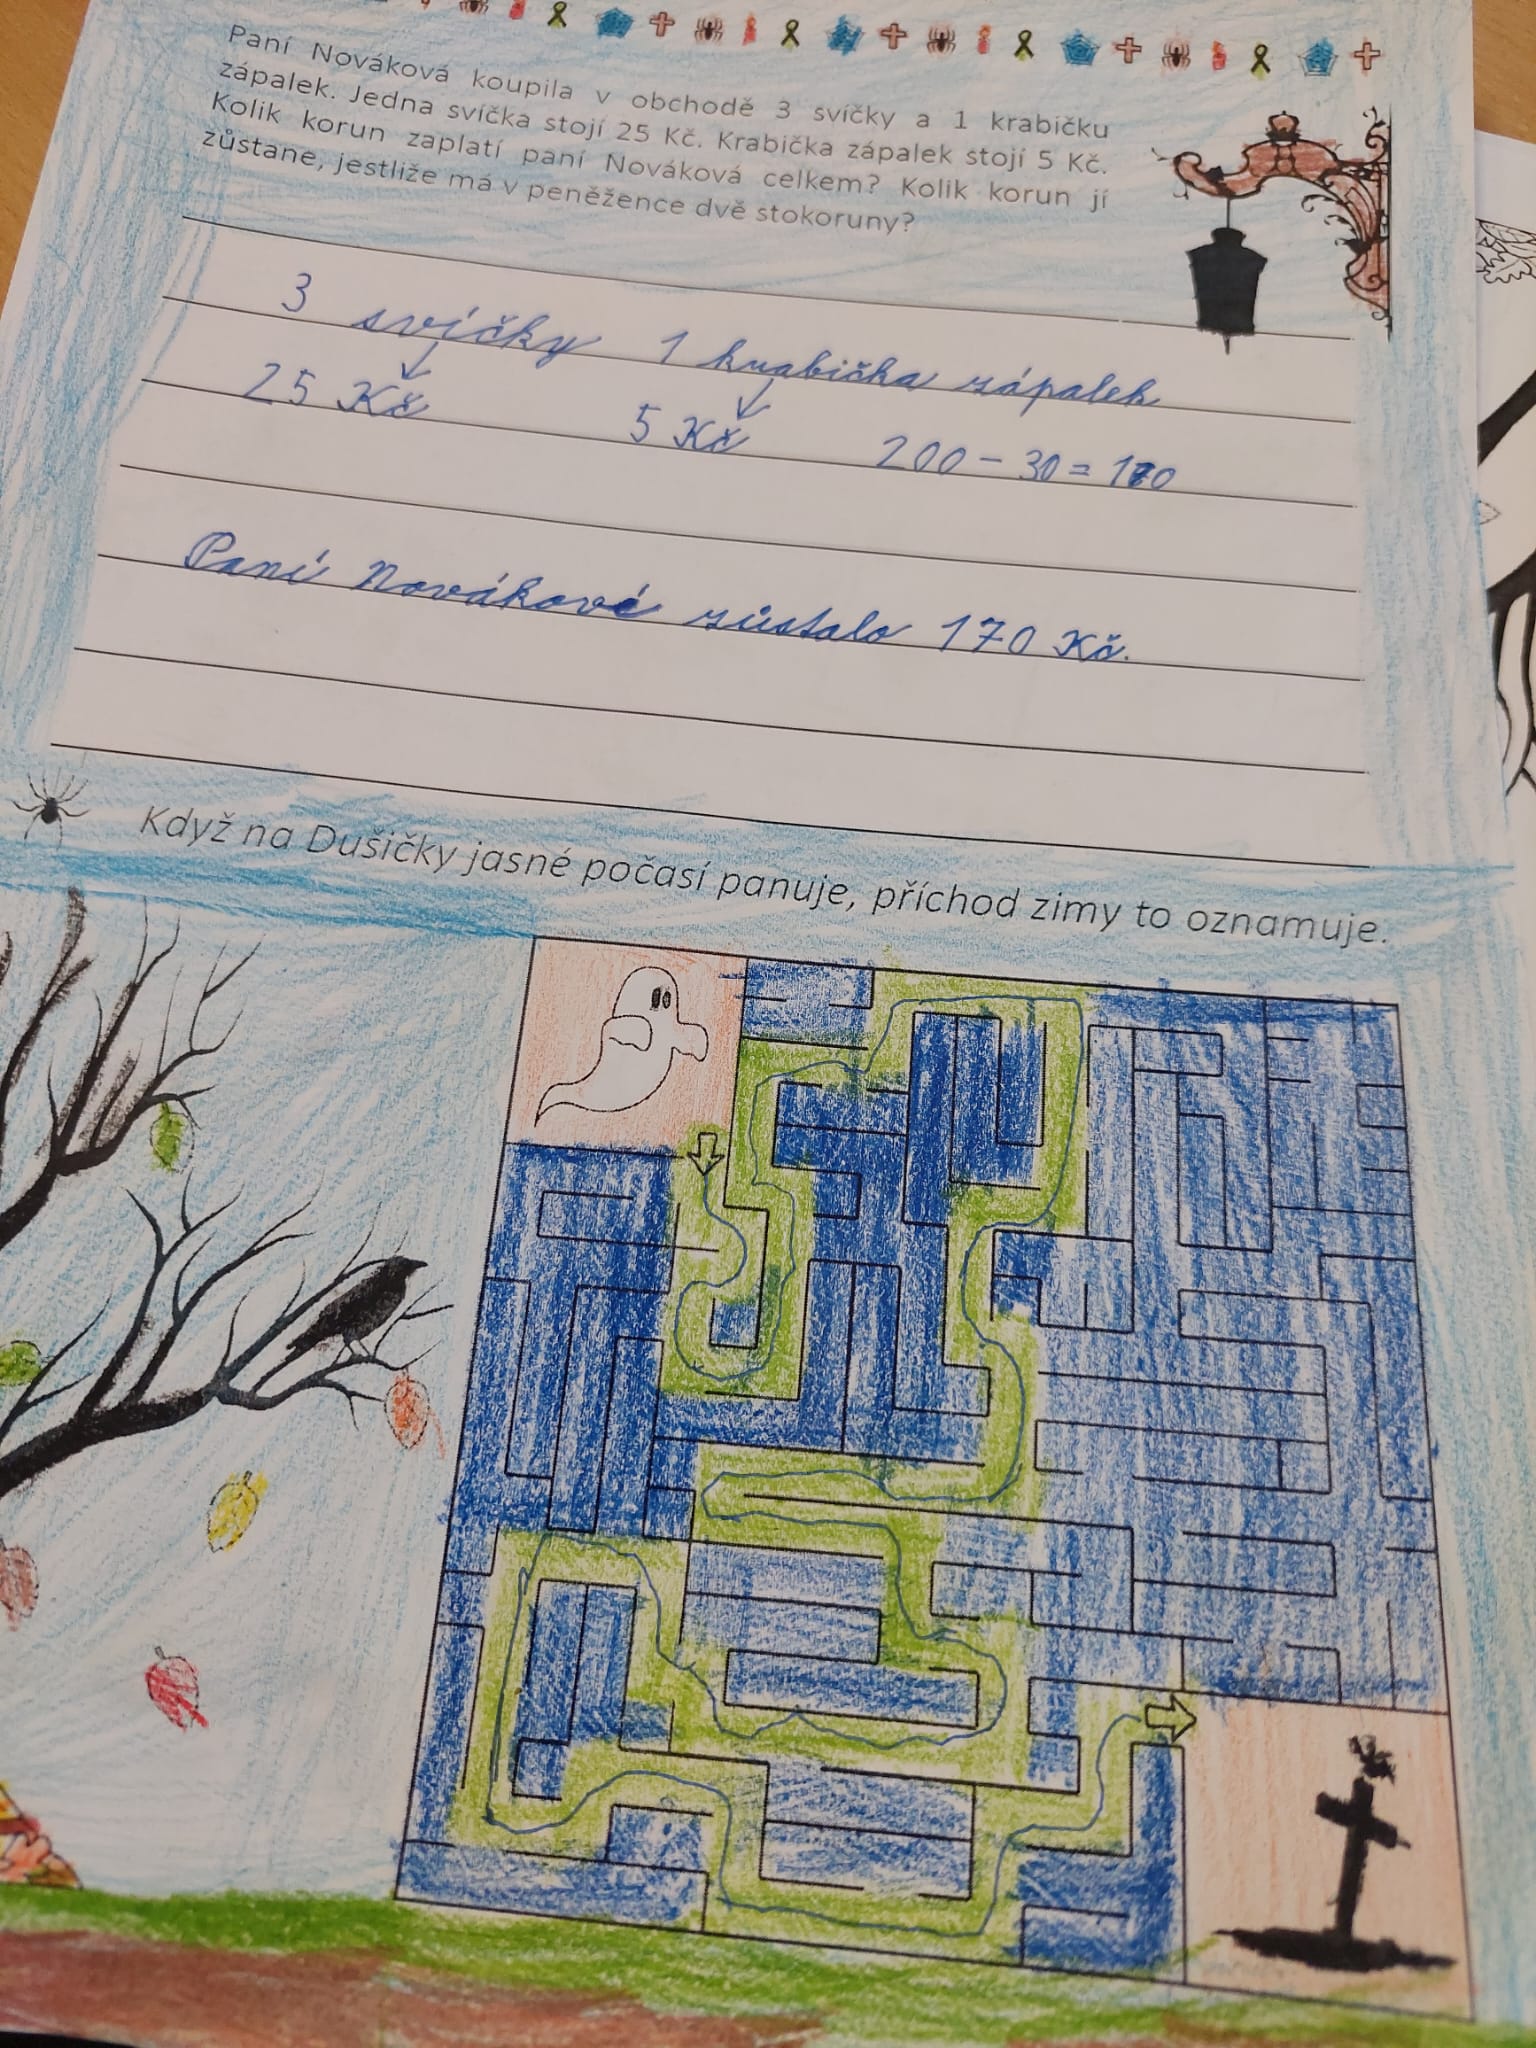 Paní Nováková koupila v obchodě 3 svíčky a 1 krabičku
zápalek. Jedna svíčka stojí 25 Kč. Krabička zápalek stojí 5 Kč.
Kolik korun zaplatí paní Nováková celkem? Kolik korun jí
zůstane, jestliže má v peněžence dvě stokoruny?
3 svíčky 1 krabička zápalek
25 Kč 5 Kč 200 - 30 = 170
Paní Novákové zůstalo 170 Kč.
Když na Dušičky jasné počasí panuje, příchod zimy to oznamuje.